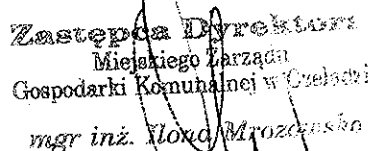 Zastępca Dyrektora
Miejskiego Zarządu
Gospodarki Komunalnej w Czeladzi
mgr inż. Ilona